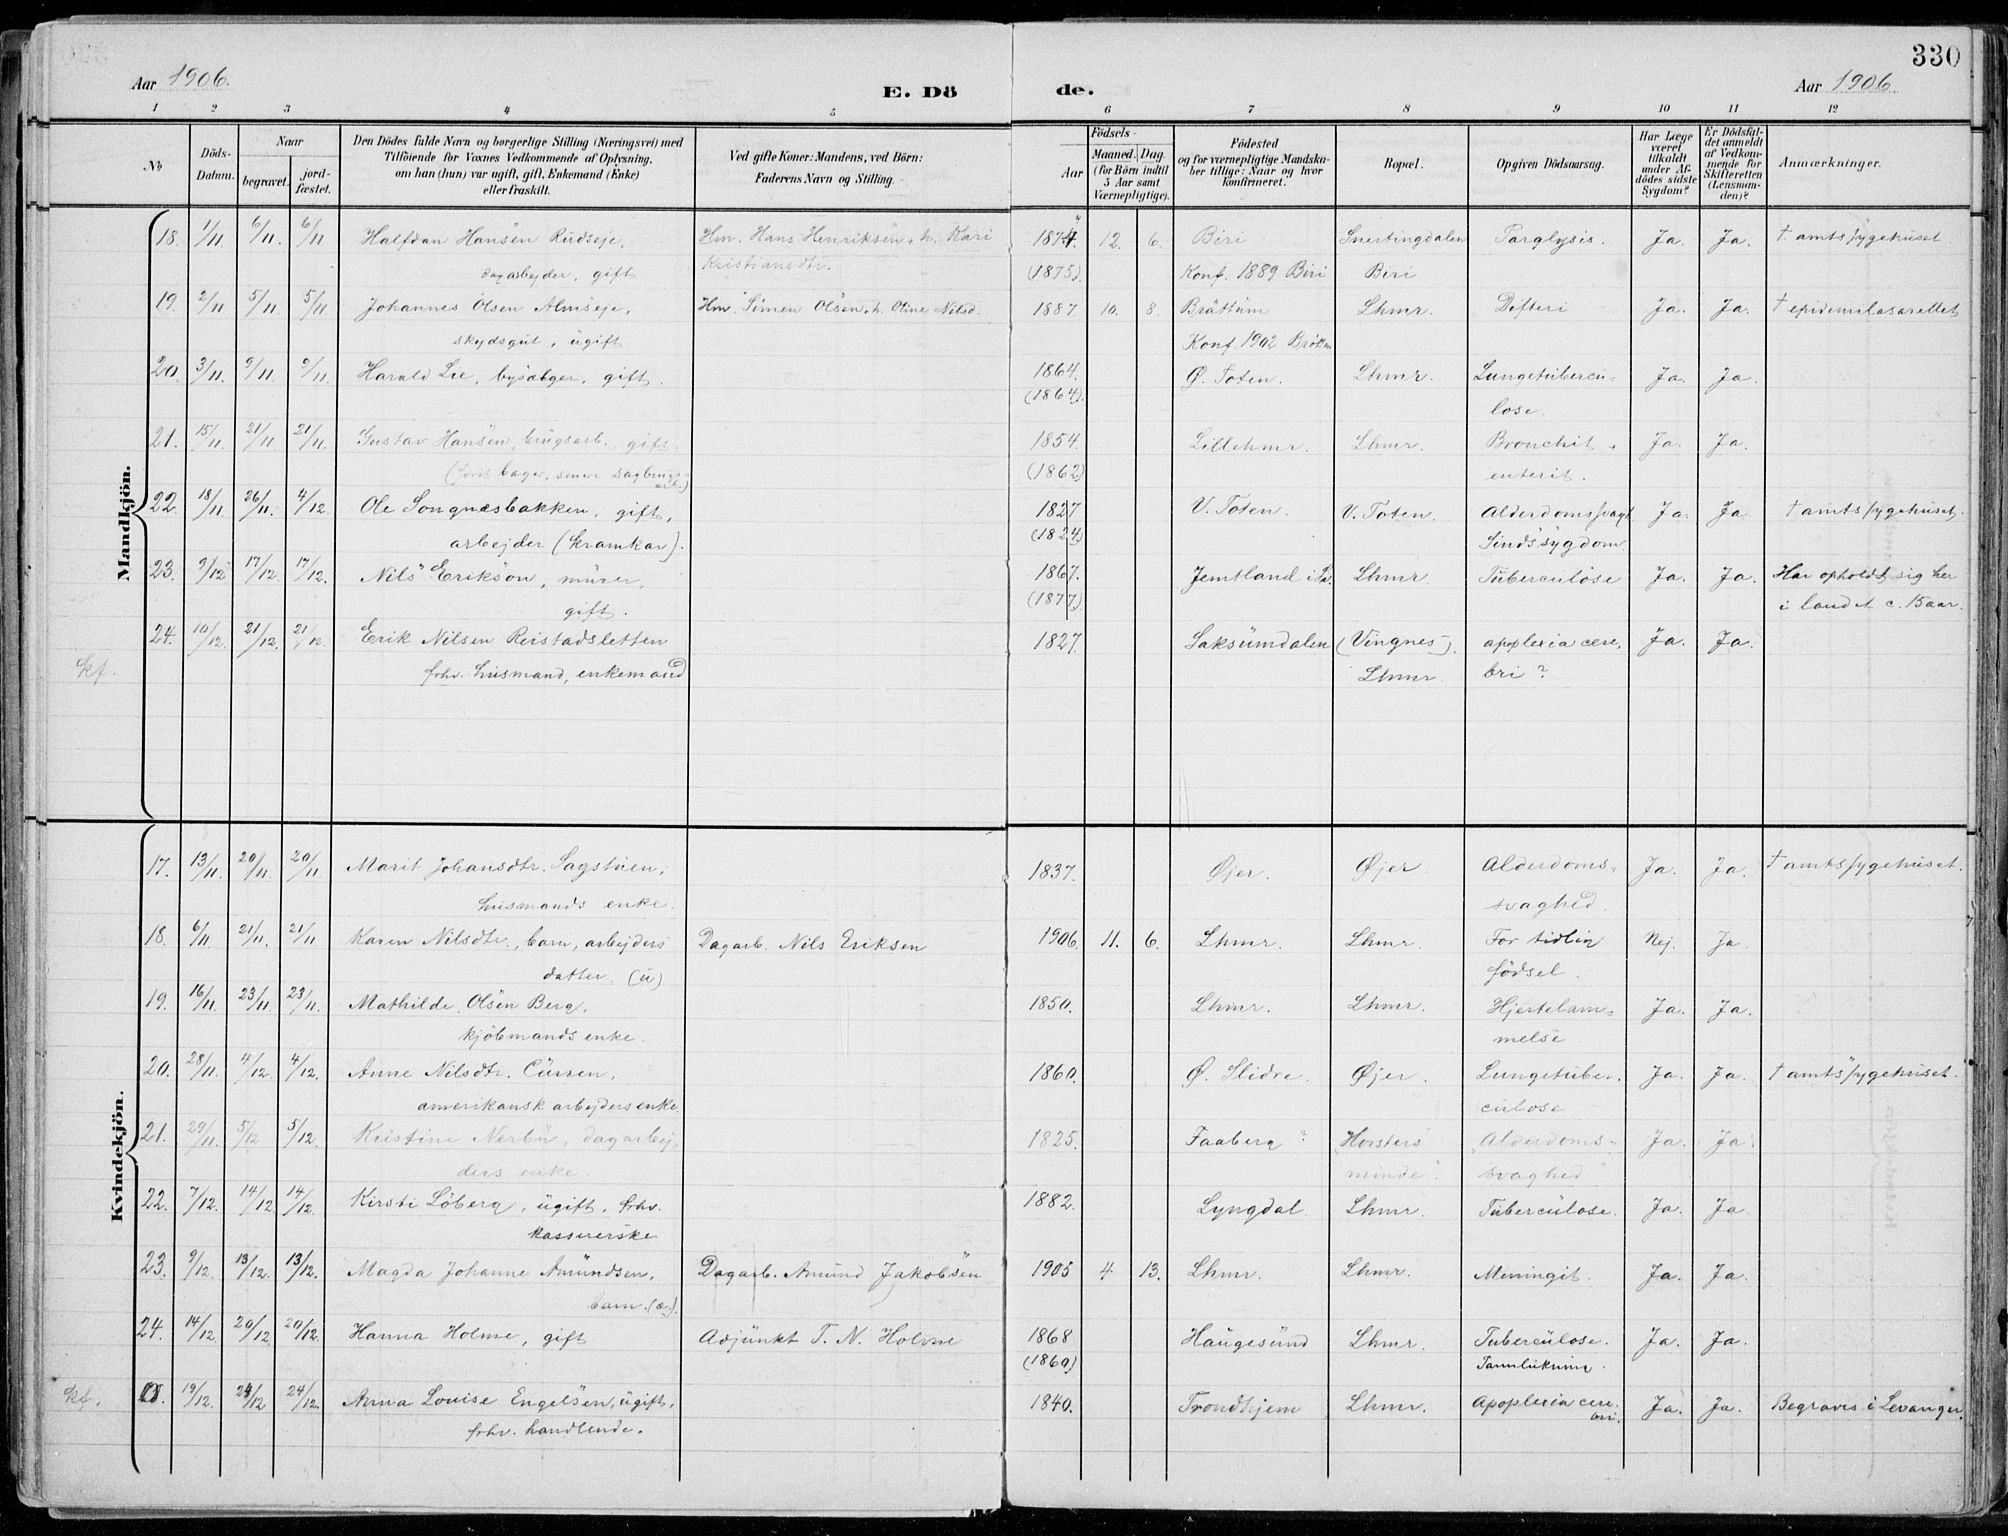 330
Aar 1906.
E. Dö
de.
Aar 1906.
1 2 3 4 5 6 7 8 9 10 11 12
No
Döds-Datum.
Naar
begravet.
jord-fæstet.
Den Dödes fulde Navn og borgerlige Stilling (Næringsvei) med
Tilföiende for Voxnes Vedkommende af Oplysning,
om han (hun) var ugift, gift, Enkemand (Enke)
eller fraskilt.
Ved gifte Koner: Mandens, ved Börn:
Faderens Navn og Stilling.
Födsels-
Aar
Maaned. Dag.
(for Börn indtil
5 Aar samt
Værnepligtige).
Födested
og for værnepligtige Mandska-
ber tillige: Naar og hvor
konfirmeret.
Bopæl.
Opgiven Dödsaarsag.
Har Læge
været
tilkaldt
under Af-
dödes sidste
Sygdom?
Er Dödsfal-
det anmeldt
af Vedkom-
mende for
Skifteretten
(Lensman-
den)?
Anmærkninger.
Mandkjön.
18. 1/11 6/11. 6/11 Halfdan Hansen Rudseje, Hm. Hans Henriksen + h. Kari 1874 12. 6. Biri Snertingdalen Ja. Ja. † amtssygehuset
dagarbejder, gift Kristiansdtr. (1875). Konf. 1889 Biri Biri
19. 2/11 5/11 5/11 Johannes Olsen Almseje, Hm. Simen Olsen + h. Oline Nilsd. 1887. 10. 8. Bröttum Lhmr. Difteri Ja. Ja. † epidemilasarettet
skydsgut, ugift Konf. 1902 Bröttm
20. 3/11. 9/11. 9/11. Harald Lie, gift. 1864. Ø. Toten. Lhmr. Lungetubercu- Ja. Ja.
(1864). lose.
21. 15/11. 21/11 21/11. Gustav Hansen, brugsarb. gift. 1854. Lillehmr. Lhmr. Bronchit + Ja. Ja.
bager, senere sagbrugs arb.) (1862) enterit.
22. 18/11. 26/11. 4/12. Ole Songnæsbakken, gift, 1827 V. Toten. V. Toten. Alderdomssvagt Ja. Ja. † amtssygehuset.
arbejder (kramkar). (1824) Sindssygdom
23. 9/12 17/12. 17/12. Nils Erikson, murer, 1867. Jemtland i Sv. Lhmr. Tuberculose Ja. Ja. Har opholdt sig her
gift. (1877). i landet c. 15 aar.
24. 10/12. 21/12. 21/12. Erik Nilsen Reistadsletten 1827. Saksumdalen (Vingnes). apoplexia cere- Ja. Ja.
kf. frhv. husmand, enkemand Lhmr. bri?
Kvindekjön.
17. 13/11. 20/11. 20/11 Marit Johansdtr. Sagstuen, 1837. Øjer. Øjer. Alderdoms- Ja. Ja. † amtssygehuset.
husmands enke. svaghed.
18. 6/11. 21/11. 21/11 Karen Nilsdtr., barn, arbejders Dagarb. Nils Eriksen 1906. 11. 6. Lhmr. Lhmr. For tidlig Nej. Ja.
datter. (u) födsel.
19. 16/11. 23/11 23/11. Mathilde Olsen Berg, 1850. Lhmr. Lhmr. Hjertelam- Ja. Ja.
kjöbmands enke. melse
20. 28/11. 4/12. 4/12. Anne Nilsdtr. 1860. Ø. Slidre. Øjer. Lungetuber- Ja. Ja. † amtssygehuset.
amerikansk arbejders enke. culose
21. 29/11. 5/12 5/12. Kristine Nerbü, dagarbej- 1825. Faaberg? "Horsters Alderdoms- Ja. Ja.
ders enke. minde". svaghed
22. 7/12. 14/12. 14/12. Kirsti Löberg, ugift, frhv. 1882. Lyngdal Lhmr. Tuberculose. Ja. Ja.
kassererske
23. 9/12. 13/12. 13/12. Magda Johanne Amundsen, Dagarb. Amund Jakobsen 1905 4 13. Lhmr. Lhmr. Meningit. Ja. Ja.
barn.
24. 14/12. 20/12. 20/12. Hanna Holme, gift Adjunkt T. N. Holme 1868 Haugesund Lhmr. Tuberculose. Ja. Ja.
(1860)
kf. 19/12. 24/12 24/12. Anna Louise Engelsen, ugift, 1840. Trondhjem Lhmr. Apoplexia cere- Ja. Ja. Begraves i Levanger.
frhv. handlende. bri.